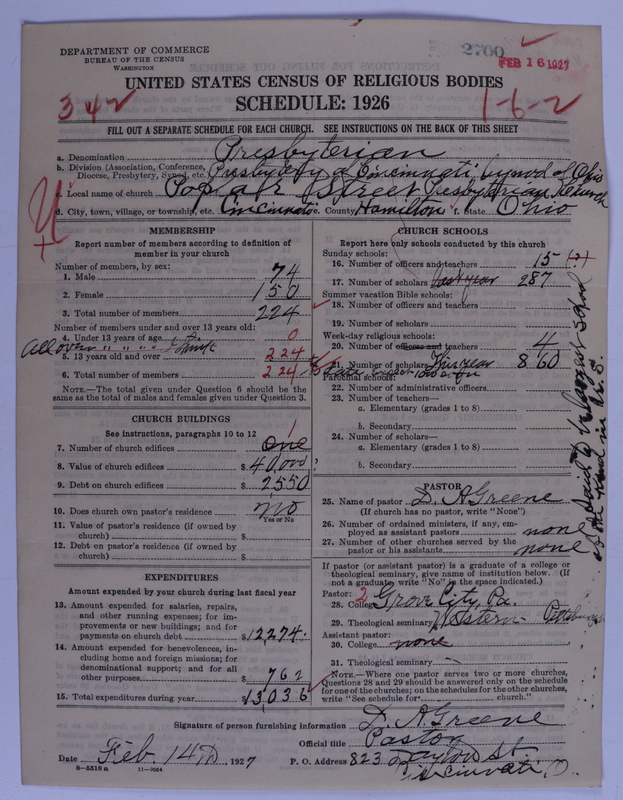 DEPARTMENT OF COMMERCE
BUREAU OF THE CENSUS
WASHINGTON
2760
FEB 16 1927
UNITED STATES CENSUS OF RELIGIOUS BODIES
SCHEDULE: 1926
342
1-6-2
FILL OUT A SEPARATE SCHEDULE FOR EACH CHURCH. SEE INSTRUCTIONS ON THE BACK OF THIS SHEET
a. Denomination Presbyterian
b. Division (Association, Conference, Diocese, Presbytery, Synod, etc.) Presbytery of Cincinnati, Synod of Ohio
c. Local name of church Poplar Street Presbyterian Church
d. City, town, village, or township, etc. Cincinnati e. County Hamilton f. State Ohio
MEMBERSHIP
Report number of members according to definition of
member in your church
Number of members, by sex:
1. Male 74
2. Female 150
3. Total number of members 224
Number of members under and over 13 years old:
4. Under 13 years of age 0
All over " " " I think
5. 13 years old and over 224
6. Total number of members 224
NOTE.—The total given under Question 6 should be the
same as the total of males and females given under Question 3.
CHURCH BUILDINGS
See instructions, paragraphs 10 to 12
7. Number of church edifices one 1
8. Value of church edifices $40,000 ?
9. Debt on church edifices $2550
10. Does church own pastor's residence no
Yes or No
11. Value of pastor's residence (if owned by
church) $
12. Debt on pastor's residence (if owned by
church) $
EXPENDITURES
Amount expended by your church during last fiscal year
13. Amount expended for salaries, repairs,
and other running expenses; for im-
provements or new building; and for
payments on church debt $12274.
14. Amount expended for benevolences, in-
cluding home and foreign missions; for
denominational support; and for all
other purposes $762
15. Total expenditures during year $13,036
CHURCH SCHOOLS
Report here only schools conducted by this church
Sunday schools:
16. Number of officers and teachers 15 (?)
17. Number of scholars last year 287
Summer vacation Bible schools:
18. Number of officers and teachers
19. Number of scholars
Week-day religious schools:
20. Number of officers and teachers 4
21. Number of scholars This year 860
Parochial schools:
22. Number of administrative officers
23. Number of teachers—
a. Elementary (grades 1 to 8)
b. Secondary
24. Number of scholars—
a. Elementary (grades 1 to 8)
b. Secondary
PASTOR
25. Name of pastor D. A Greene
(If church has no pastor, write "None")
26. Number of ordained ministers, if any, em-
ployed as assistant pastors none
27. Number of other churches served by the
pastor or his assistants none
If pastor (or assistant pastor) is a graduate of a college or
theological seminary, give name of institution below. (If
not a graduate, write "No" in the space indicated.)
Pastor: 2
28. College Grove City, Pa.
29. Theological seminary Western Pittsburgh
Assistant pastor:
30. College none
31. Theological seminary
NOTE.—Where one pastor serves two or more churches,
Questions 28 and 29 should be answered only on the schedule
for one of the churches; on the schedules for the other churches,
write "See schedule for church."
Signature of person furnishing information D. A Greene
Official title Pastor
Date Feb. 14th, 1927 P. O. Address 823 Dayton St.
Cincinnati, O.
8—5518 a 11—9054